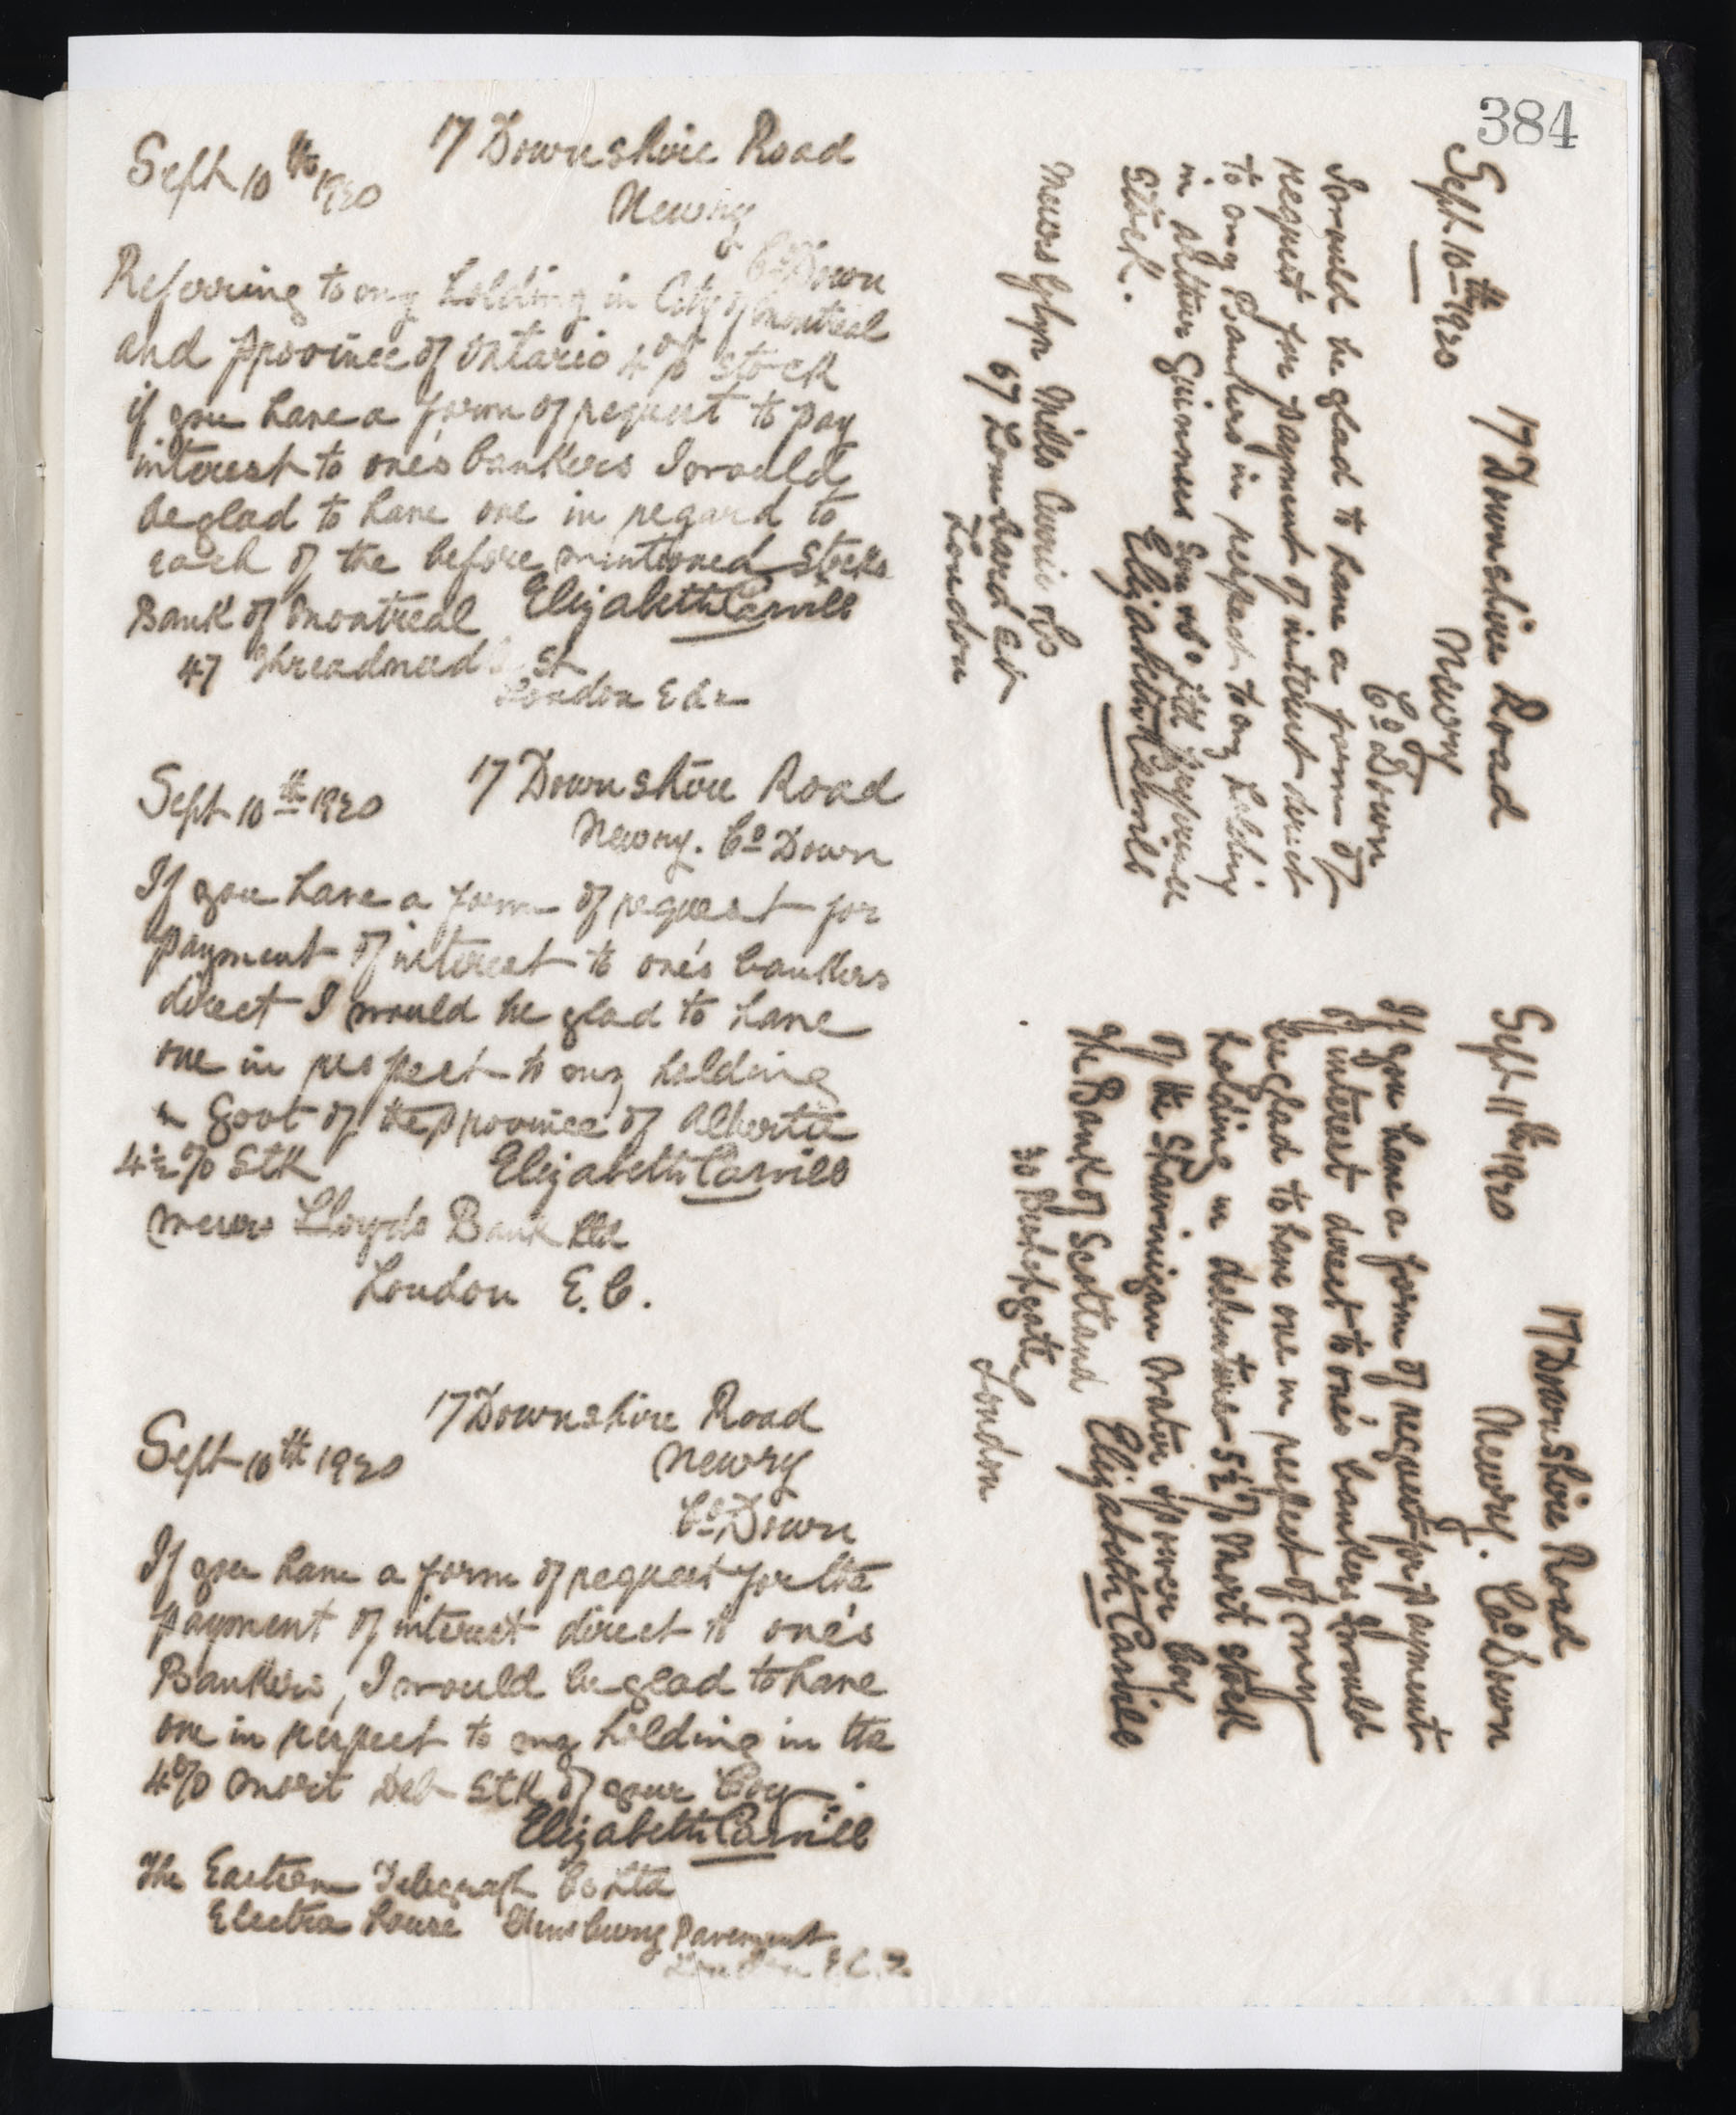 384
17 Downshire Road
Sept 10th 1920
Newry
Co Down
Referring to my holding in City of Montreal
and Province of Ontario 4% Stock
if you have a form of request to pay
interest to one's bankers I would
be glad to have one in regard to
each of the before mentioned Stocks
Elizabeth Carvill
Bank of Montreal
47 Threadneedle St
London
17 Downshire Road
Sept 10th 1920
Newry. Co Down
If you have a form of request for
payment of interest to one's bankers
direct I would be glad to have
one in respect to my holding
in Govt of the Province of Alberta
4½% Stk
Elizabeth Carvill
Messrs Lloyds Bank Ltd
London E.C.
17 Downshire Road
Sept 10th 1920
Newry
Co Down
If you have a form of request for the
payment of interest direct to one's
Bankers, I would be glad to have
one in respect to my holding in the
4% Mort Deb Stk of your Coy.
Elizabeth Carvill
The Eastern Telegraph Co Ltd
Electra House Finsbury Pavement
London E.C.2.
17 Downshire Road
Sept 10th 1920
Newry
Co Down
I would be glad to have a form of
request for payment of interest direct
to my Bankers in respect to my holding
in Arthur Guinness Son & Co Ltd Preference
Stock.
Elizabeth Carvill
Messrs Glyn Mills Currie & Co
67 Lombard St
London
17 Downshire Road
Sept 11th 1920
Newry. Co Down
If you have a form of request for payment
of interest direct to one's bankers I would
be glad to have one in respect of my
holding in debenture 5½% Mort Stock
of the Shawinigan Water & Power Coy
Elizabeth Carvill
The Bank of Scotland
30 Bishopsgate
London